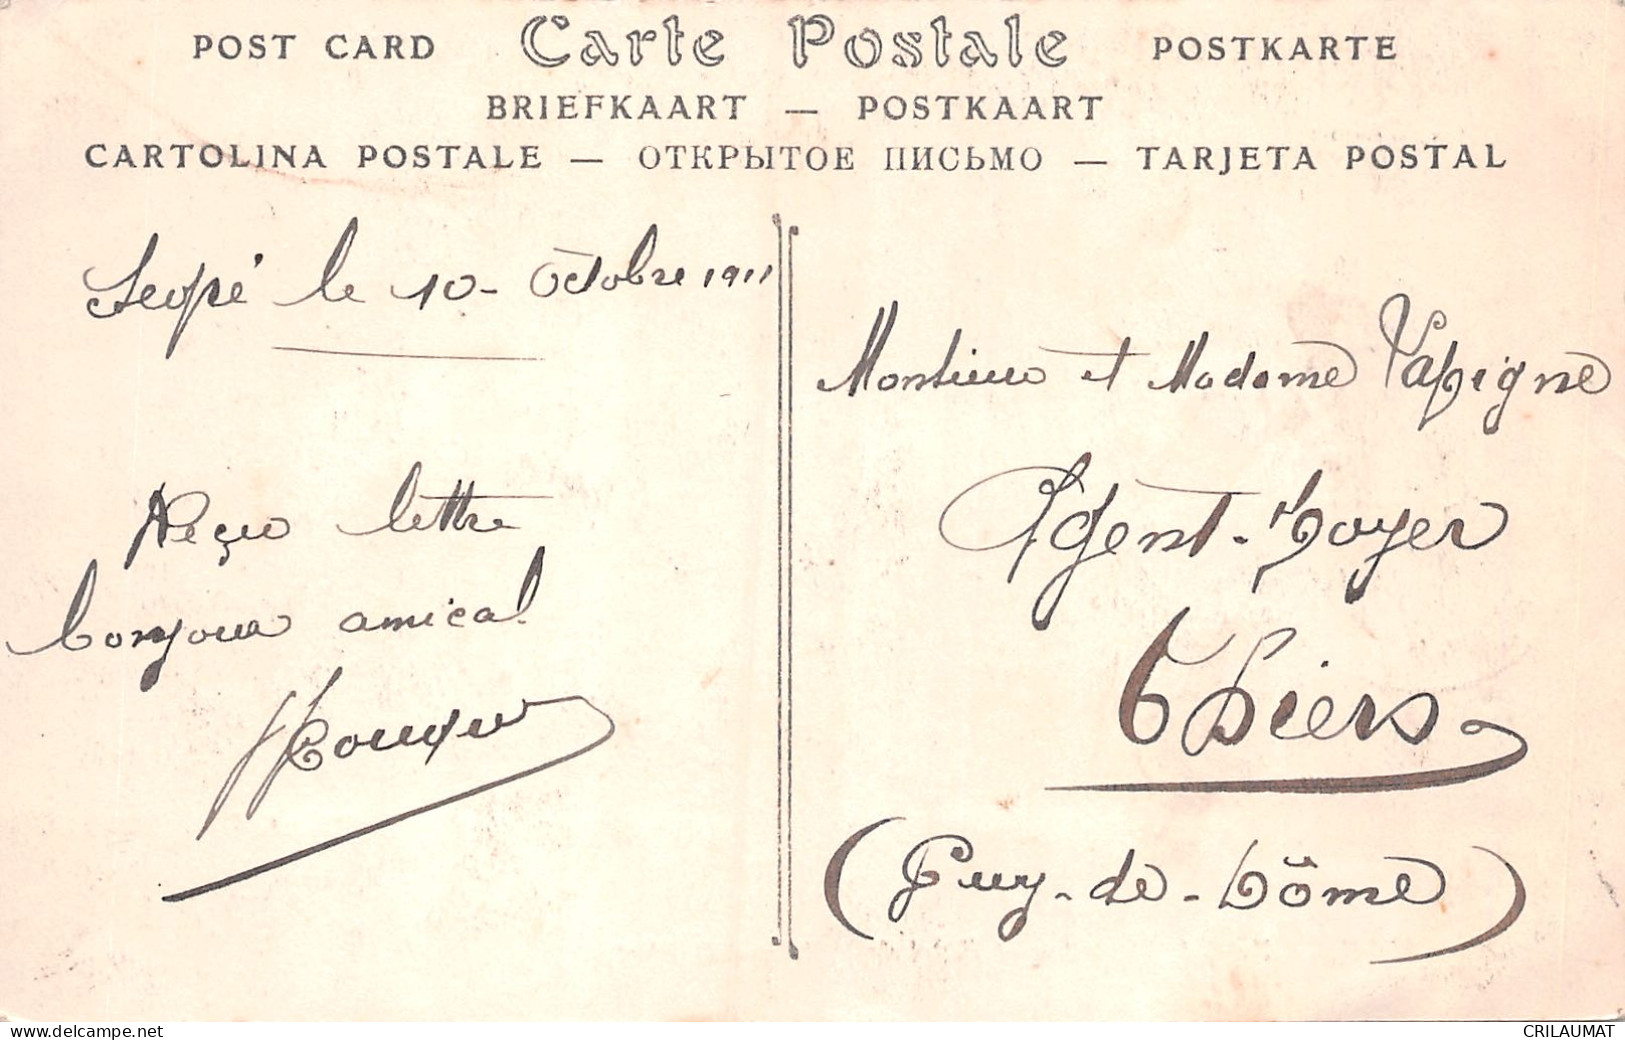 POST CARD Carte Postale POSTKARTE
BRIEFKAART — POSTKAART
CARTOLINA POSTALE — ОТКРЫТОЕ ПИСЬМО — TARJETA POSTAL
le 10 - Octobre 1911
Reçu lettre
bonjour amical
Monsieur et Madame
Agent-Voyer
Thiers
(Puy-de-Dôme)
www.delcampe.net
CRILAUMAT